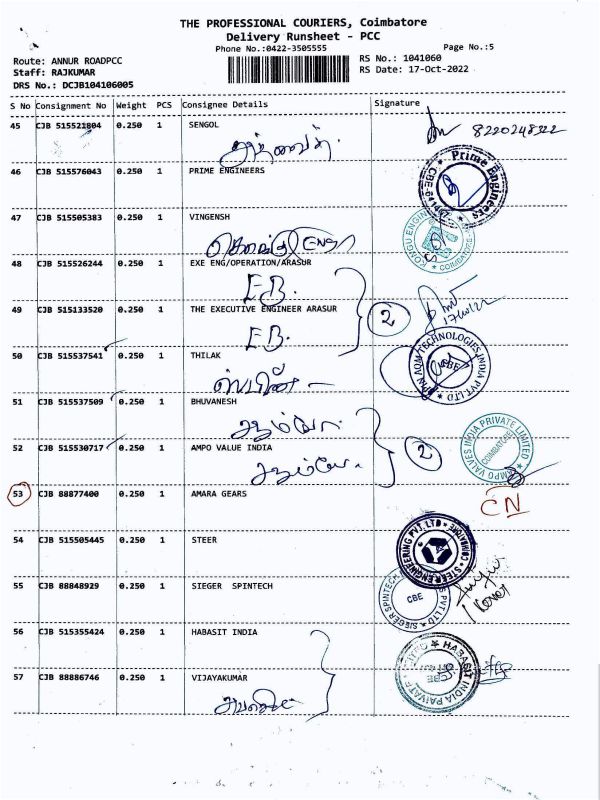 THE PROFESSIONAL COURIERS, Coimbatore
Delivery Runsheet - PCC
Phone No.:0422-3505555
Page No.:5
Route: ANNUR ROADPCC
RS No.: 1041060
Staff: RAJKUMAR
RS Date: 17-Oct-2022
DRS No.: DCJB104106005
S No Consignment No Weight PCS Consignee Details Signature
45 CJB 515521804 0.250 1 SENGOL
46 CJB 515576043 0.250 1 PRIME ENGINEERS
Prime Engineers
47 CJB 515505383 0.250 1 VINGENSH
48 CJB 515526244 0.250 1 EXE ENG/OPERATION/ARASUR
E.B.
49 CJB 515133520 0.250 1 THE EXECUTIVE ENGINEER ARASUR
2
E.B.
50 CJB 515537541 0.250 1 THILAK
51 CJB 515537509 0.250 1 BHUVANESH
52 CJB 515530717 0.250 1 AMPO VALUE INDIA
2
AMPO VALVES INDIA PRIVATE LIMITED
COIMBATORE
53 CJB 88877400 0.250 1 AMARA GEARS
CN
54 CJB 515505445 0.250 1 STEER
STEER ENGINEERING PVT. LTD
55 CJB 88848929 0.250 1 SIEGER SPINTECH
SIEGER SPINTECH PVT LTD
CBE
56 CJB 515355424 0.250 1 HABASIT INDIA
HABASIT INDIA
57 CJB 88886746 0.250 1 VIJAYAKUMAR